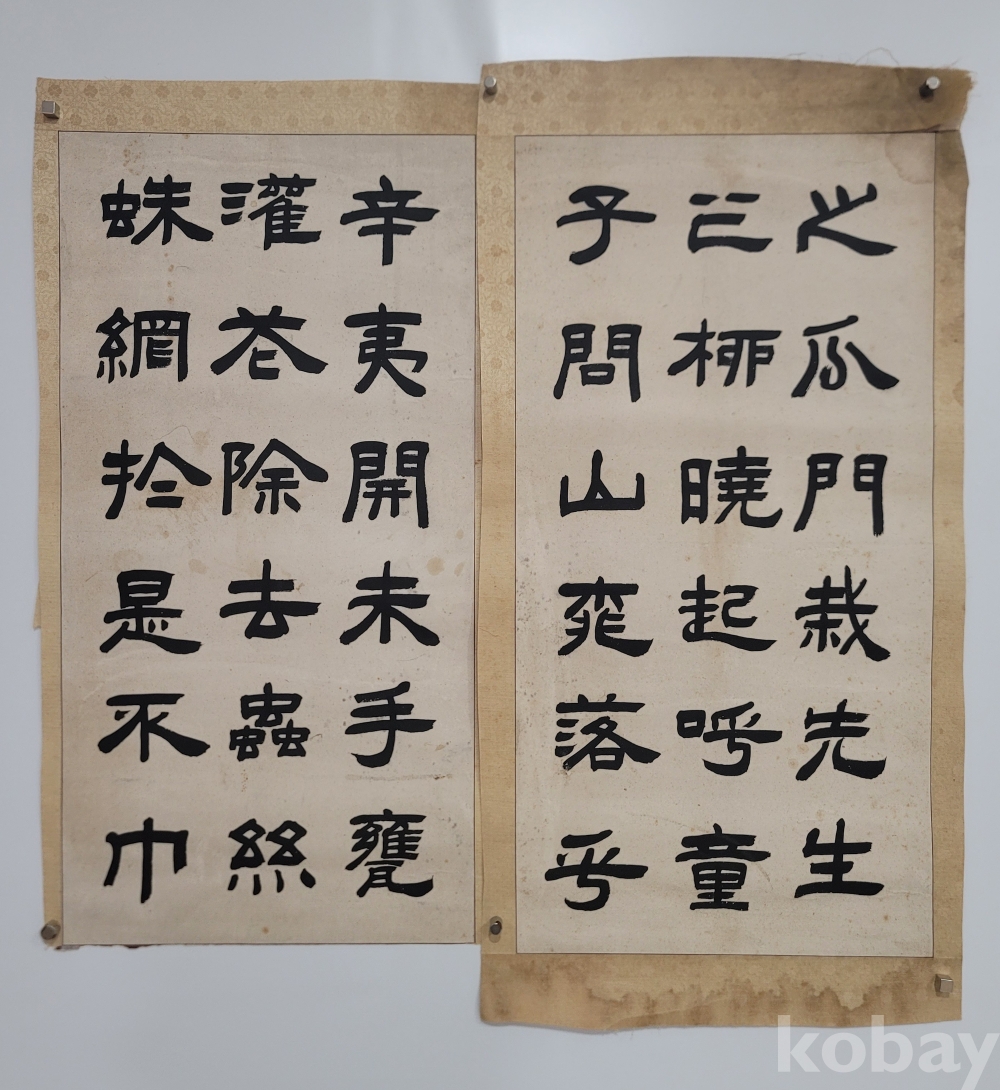 之瓜門栽先生
之柳曉起呼童
子問山桃落乎
辛夷開未手甕
灌花除去蟲絲
蛛網於是不巾
kobay